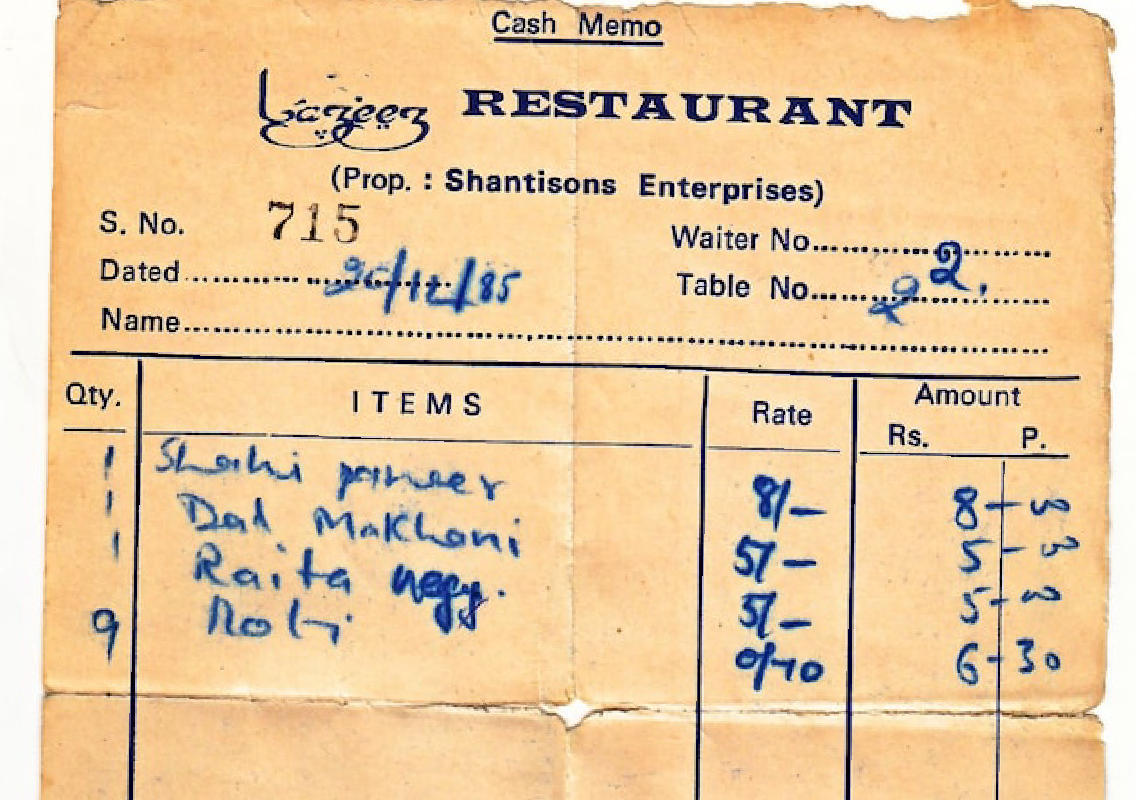 Cash Memo
Lazeez RESTAURANT
(Prop. : Shantisons Enterprises)
S. No. 715
Waiter No.
Dated /12/85
Table No. 22.
Name
Qty. ITEMS Rate Amount
Rs. P.
1 Shahi paneer 8/- 8-00
1 Dal Makhani 5/- 5-00
1 Raita vegy. 5/- 5-00
9 Roti 0/70 6-30